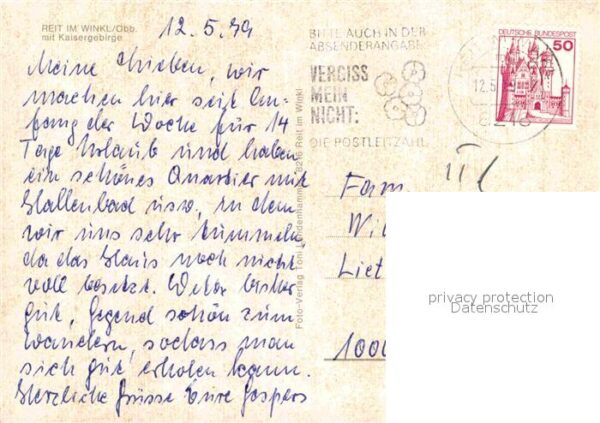 REIT IM WINKL/Obb.
mit Kaisergebirge
12.5.79
Meine Lieben, wir
machen hier seit An-
fang der Woche für 14
Tage Urlaub und haben
ein schönes Quartier mit
Hallenbad usw, in dem
wir uns sehr tummeln
da das Haus noch nicht
voll besetzt. Wetter bisher
gut, Gegend schön zum
wandern, sodass man
sich gut erholen kann.
Herzliche Grüsse Eure Jaspers
Foto-Verlag Toni 8216 Reit im Winkl
BITTE AUCH IN DER
ABSENDERANGABE:
VERGISS
MEIN
NICHT:
DIE POSTLEITZAHL
12.5.
8216
DEUTSCHE BUNDESPOST
50
Fam.
W.
Liet
1000
privacy protection
Datenschutz